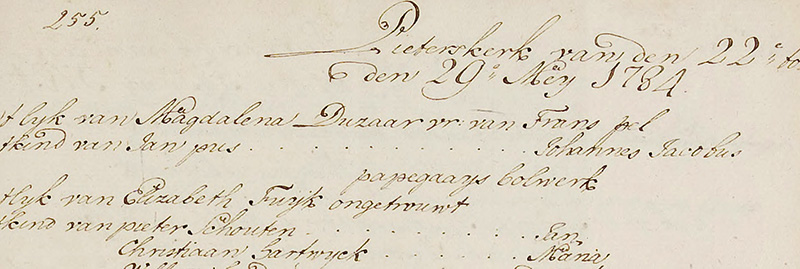 255.
Pieterskerk van den 22e to
den 29e Meÿ 1784
t lyk van Magdalena Duzaar vr: van Frans pel
tkind van Jan pus . . . . . . . . . . . . Johannes Jacobus
papegaays bolwerk
tlyk van Elizabeth Fuijk ongetrouwt
tkind van pieter Schouten . . . . . . . . . . Jan
Christiaan hartwyck . . . . . . . . Maria